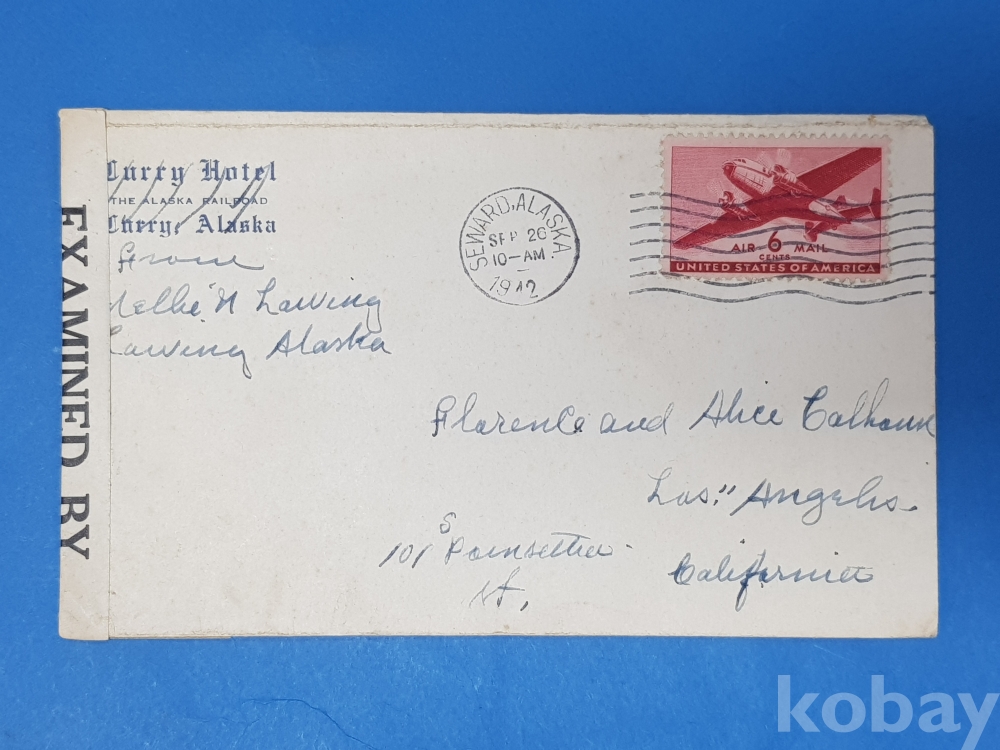 EXAMINED BY
Curry Hotel
THE ALASKA RAILROAD
Curry, Alaska
From
Nellie N Lawing
Lawing Alaska
SEWARD, ALASKA.
SEP 26
10-AM
1942
AIR 6 MAIL
CENTS
UNITED STATES OF AMERICA
Florence and Alice Calhoun
Los," Angeles.
101 S Poinsettia
St,
California
kobay